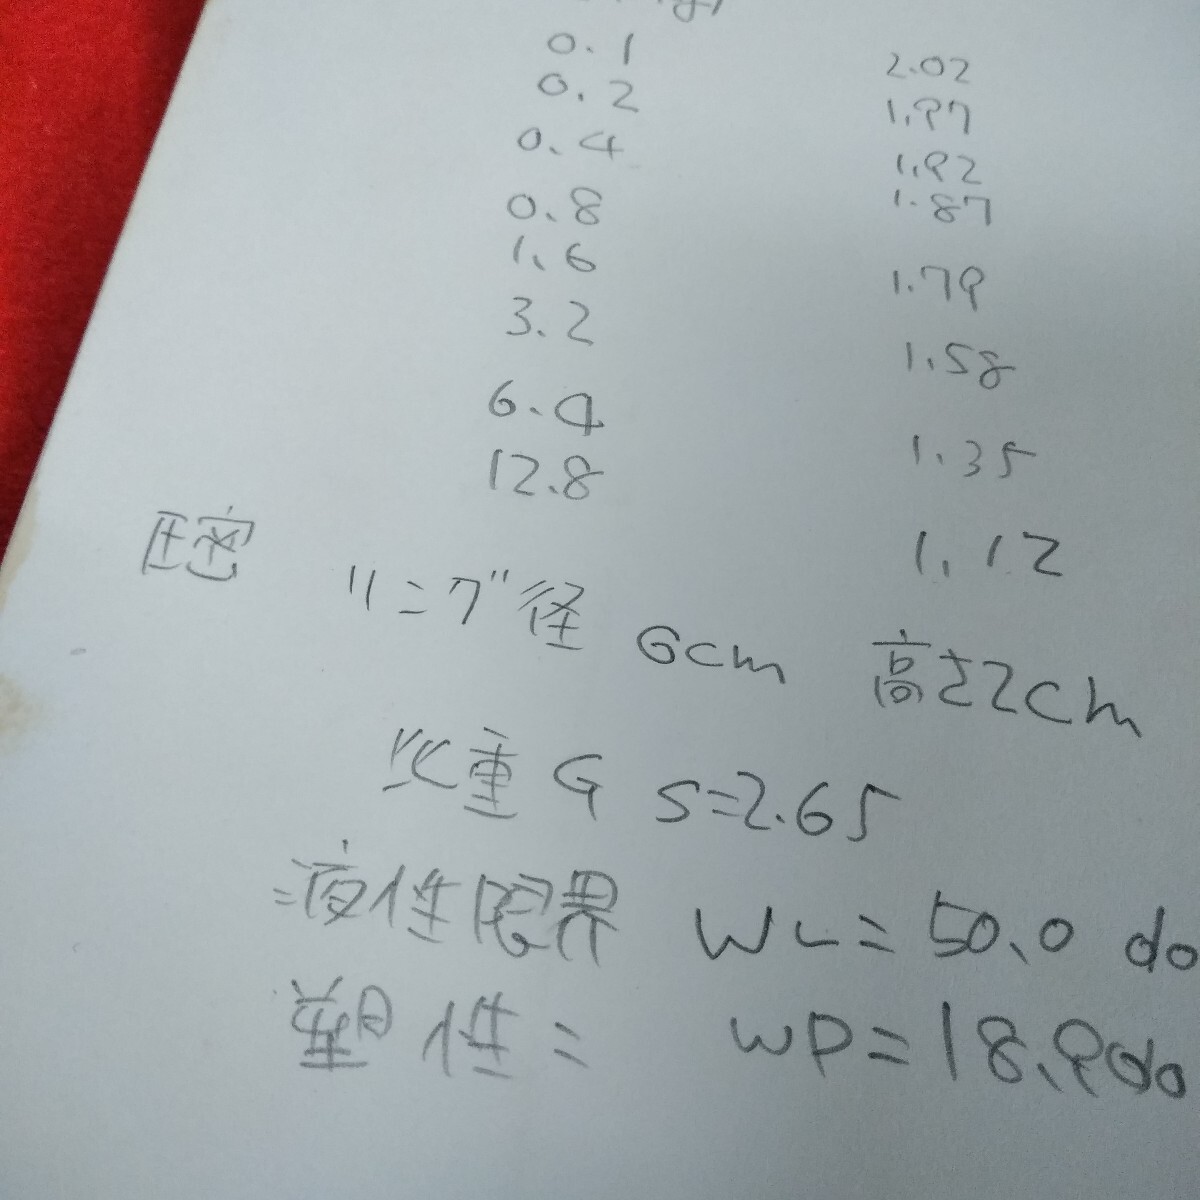 0.1 2.02
0.2 1.97
0.4 1.92
0.8 1.87
1.6 1.79
3.2 1.58
6.4 1.35
12.8 1.12
圧密 リング径 6cm 高さ2cm
比重 G s=2.65
液性限界 WL=50.0 do
塑性= WP=18.9do